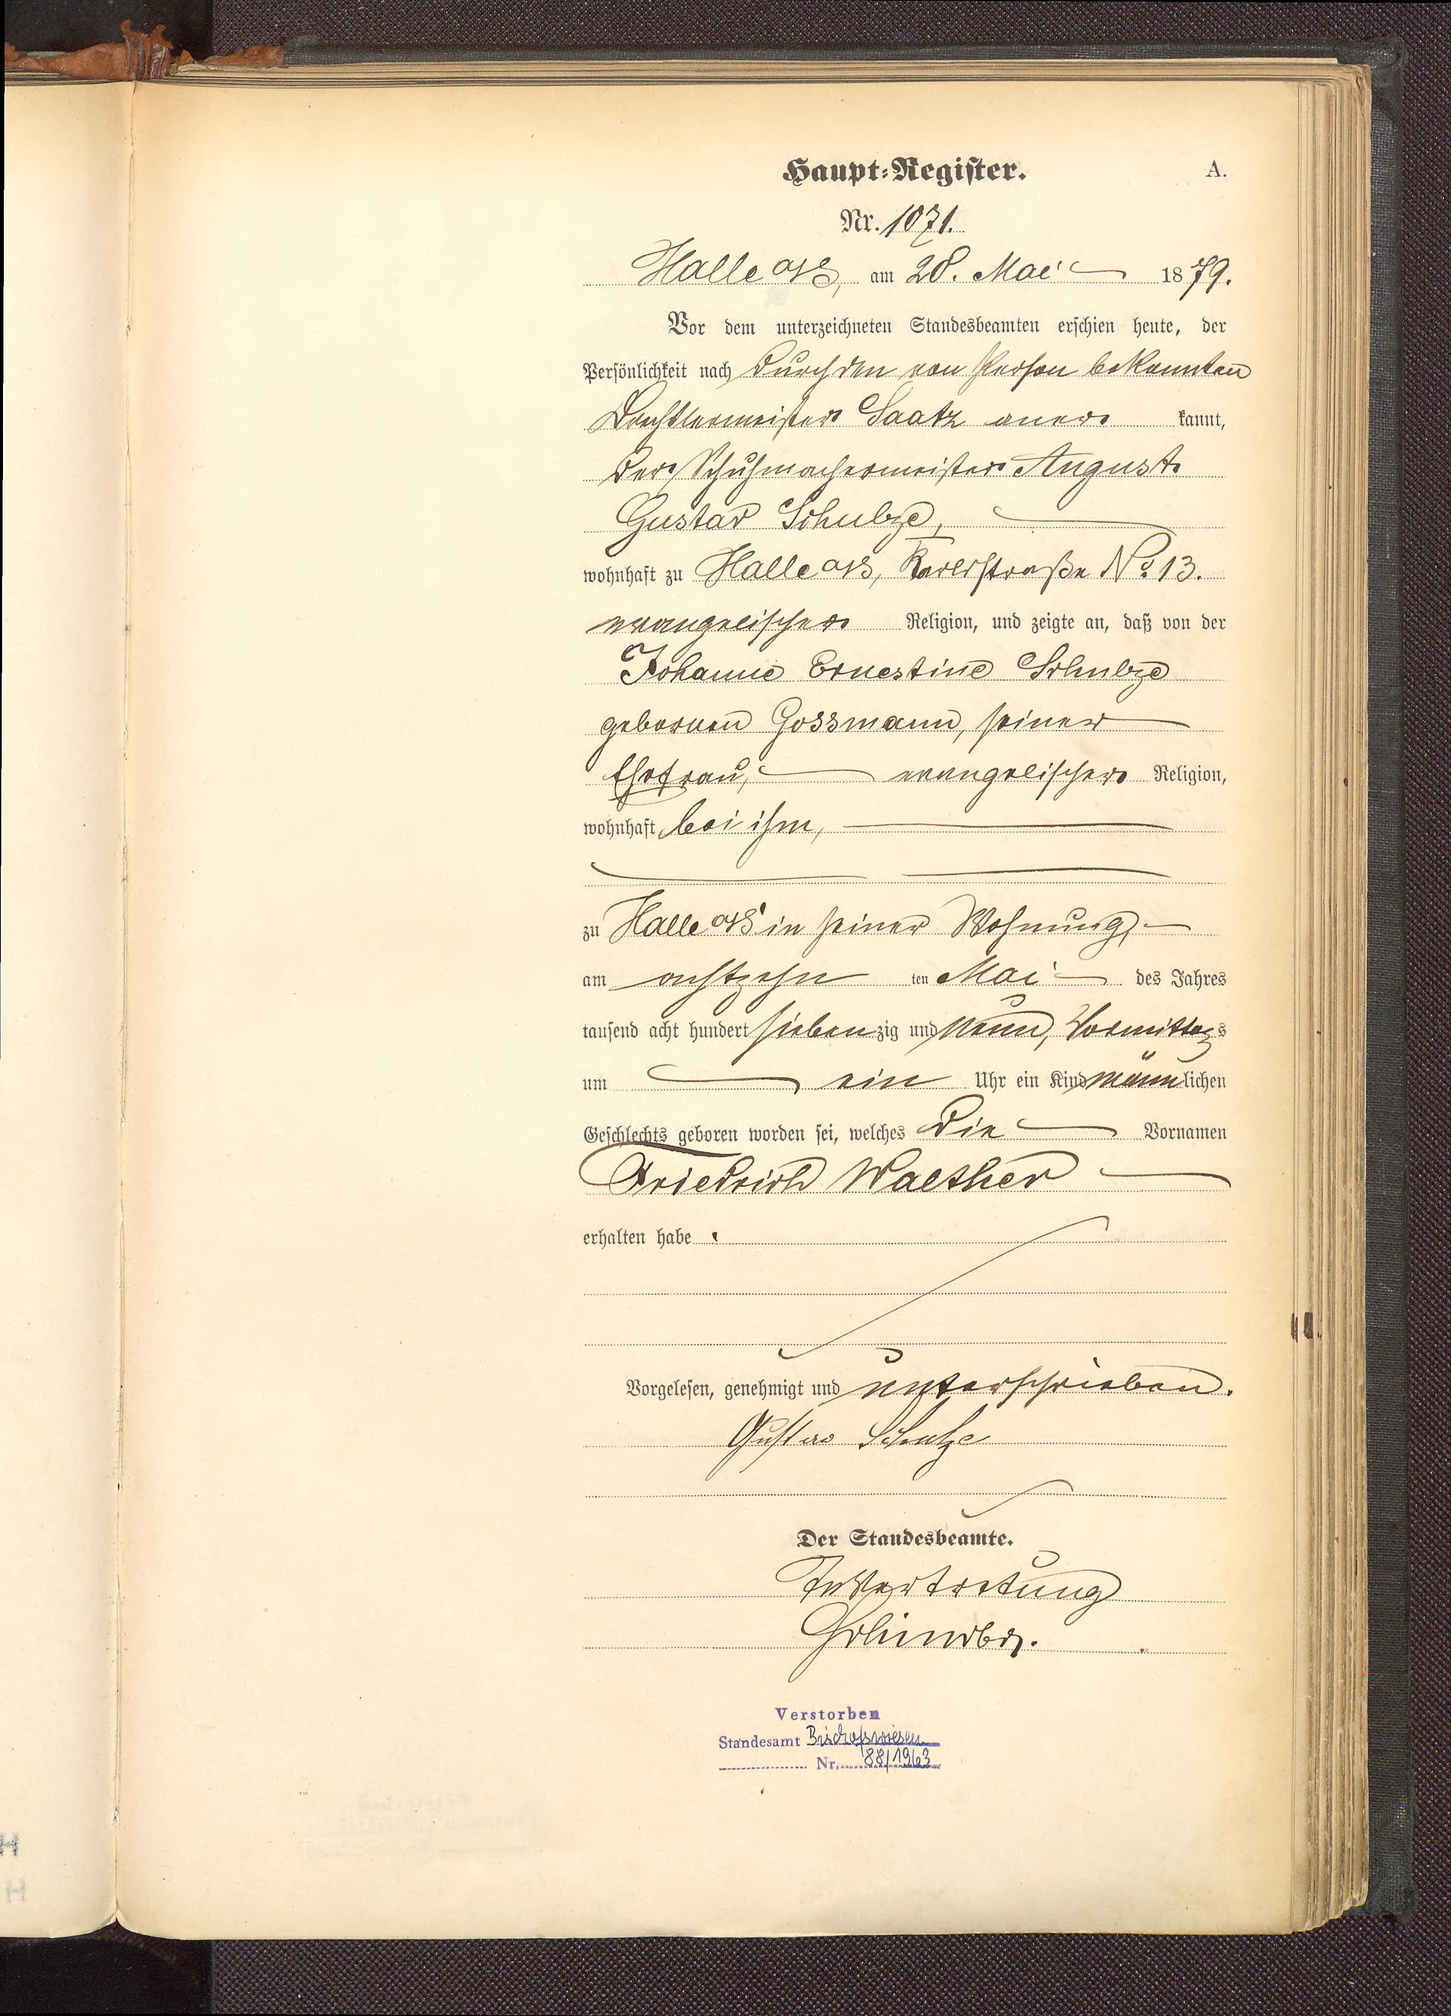 Haupt-Register.
A.
Nr. 1071.
Halle a/S, am 28. Mai 1879.
Vor dem unterzeichneten Standesbeamten erschien heute, der
Persönlichkeit nach durch den von Person bekannten
Drechslermeister Saatz aner kannt,
der Schuhmachermeister August
Gustav Schulze,
wohnhaft zu Halle a/S, Karlstraße No 13.
evangelischer Religion, und zeigte an, daß von der
Johanne Ernestine Schulze
geborenen Gossmann, seiner
Ehefrau, evangelischer Religion,
wohnhaft bei ihm,
zu Halle a/S in seiner Wohnung,
am achtzehn ten Mai des Jahres
tausend acht hundert siebenzig und neun, Vormittags
um ein Uhr ein Kind männlichen
Geschlechts geboren worden sei, welches die Vornamen
Friedrich Walther
erhalten habe.
Vorgelesen, genehmigt und unterschrieben.
Gustav Schulze
Der Standesbeamte.
In Vertretung
Verstorben
Standesamt Bischofswiesen
Nr. 88/1963